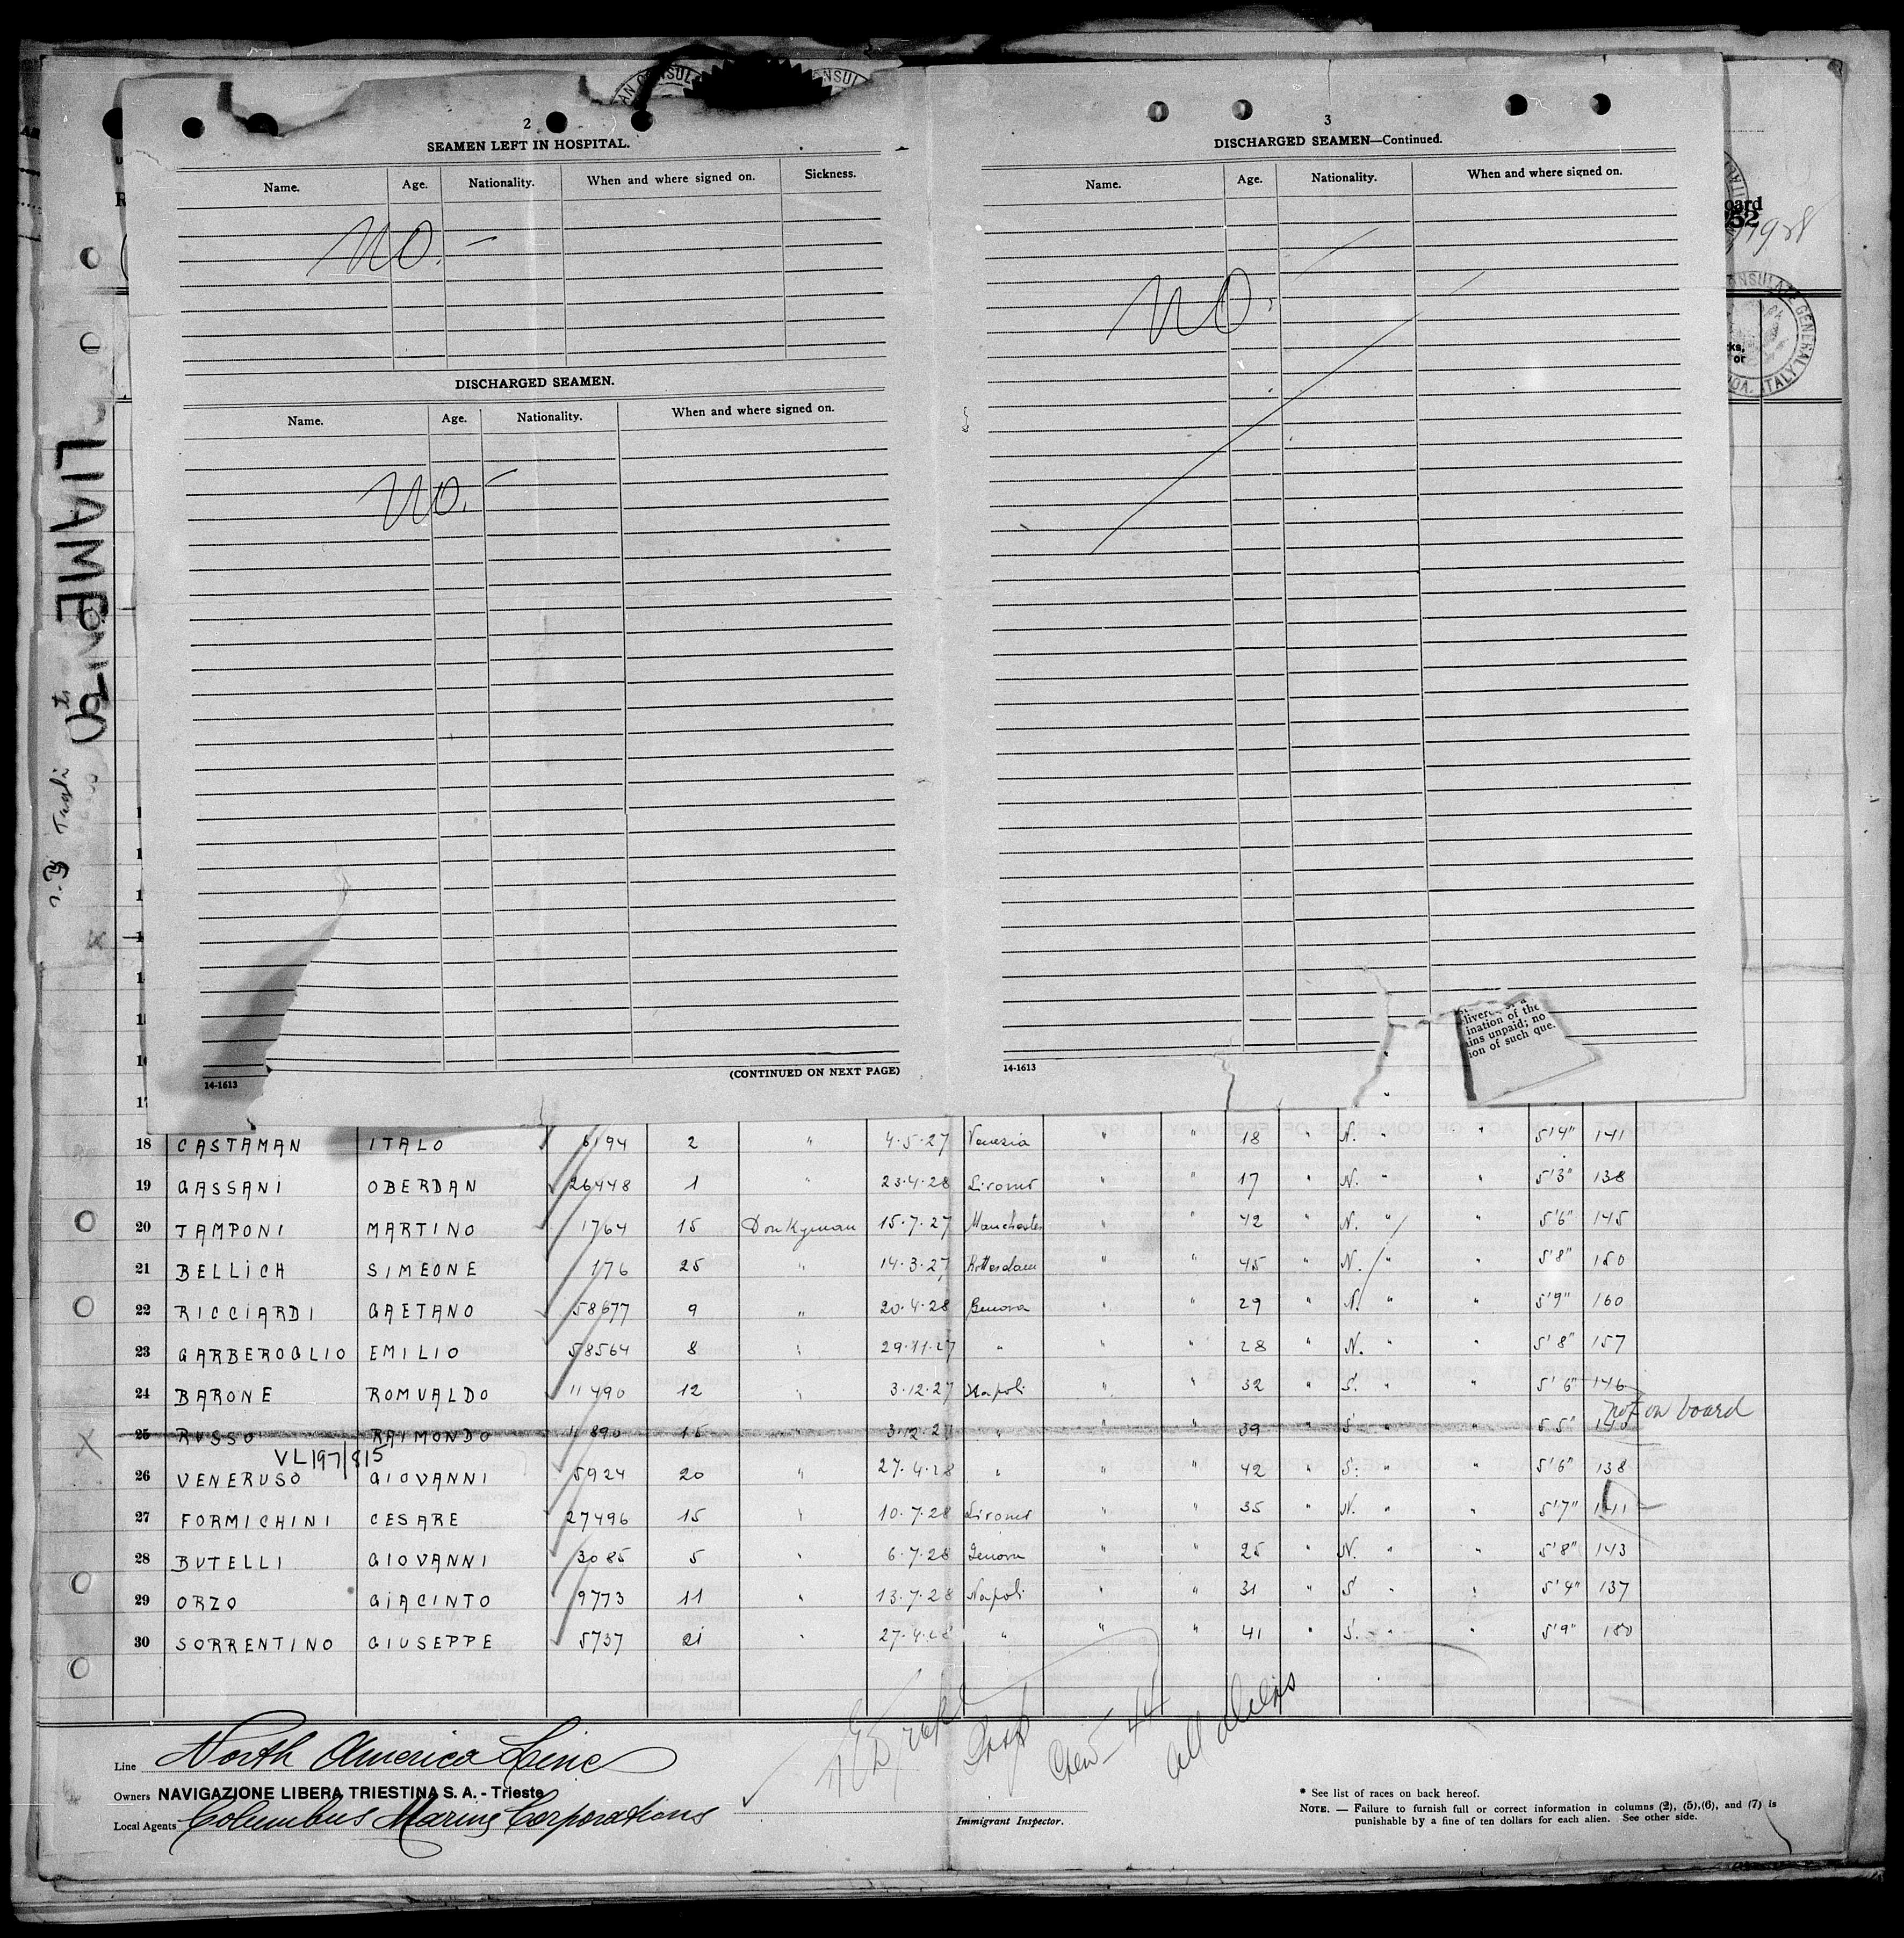 2
SEAMEN LEFT IN HOSPITAL.
Name. Age. Nationality. When and where signed on. Sickness.
NO. —
DISCHARGED SEAMEN.
Name. Age. Nationality. When and where signed on.
NO. —
14-1613 (CONTINUED ON NEXT PAGE)
3
DISCHARGED SEAMEN—Continued.
Name. Age. Nationality. When and where signed on.
NO.
14-1613
ination of the
ains unpaid; no
ion of such que.
oard
52
1928
CONSULATE GENERAL
ITALY
LIAME
18 CASTAMAN ITALO 6194 2 " 4.5.27 Venezia " " 18 " N. " " 5'4" 141
19 GASSANI OBERDAN 26448 1 " 23.4.28 Livorno " " 17 " N. " " 5'3" 138
20 TAMPONI MARTINO 1764 15 Donkyman 15.7.27 Manchester " " 42 " N. " " 5'6" 145
21 BELLICH SIMEONE 176 25 " 14.3.27 Rotterdam " " 45 " N. " " 5'8" 150
22 RICCIARDI GAETANO 58677 9 " 20.4.28 Genova " " 29 " N. " " 5'9" 160
23 GARBEROGLIO EMILIO 58564 8 " 29.11.27 " " " 28 " N. " " 5'8" 157
24 BARONE ROMUALDO 11490 12 " 3.12.27 Napoli " " 32 " S. " " 5'6" 146
not on board
25 RUSSO RAIMONDO 11890 15 " 3.12.27 " " " 39 " S " " 5'5" 140
VL 197/815
26 VENERUSO GIOVANNI 5924 20 " 27.4.28 " " " 42 " S. " " 5'6" 138
27 FORMICHINI CESARE 27496 15 " 10.7.28 Livorno " " 35 " N. " " 5'7" 141
28 BUTELLI GIOVANNI 3085 5 " 6.7.28 Genova " " 25 " N. " " 5'8" 143
29 ORZO GIACINTO 9773 11 " 13.7.28 Napoli " " 31 " S " " 5'4" 137
30 SORRENTINO GIUSEPPE 5737 21 " 27.4.28 " " " 41 " S. " " 5'9" 180
Crew - 44
all aliens
Line North America Line
Owners NAVIGAZIONE LIBERA TRIESTINA S. A. - Trieste
Local Agents Columbus Marine Corporations
Immigrant Inspector.
* See list of races on back hereof.
NOTE. — Failure to furnish full or correct information in columns (2), (5),(6), and (7) is
punishable by a fine of ten dollars for each alien. See other side.